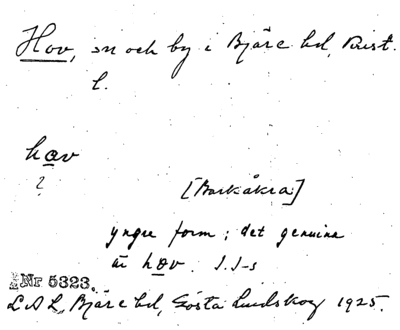 Hov, sn och by i Bjäre hd, Krist.
l.
hav
?
[Barkåkra]
yngre form; det genuina
är høv. I.I-s
Nr 5323.
L A L, Bjäre hd, Gösta Lundskog 1925.